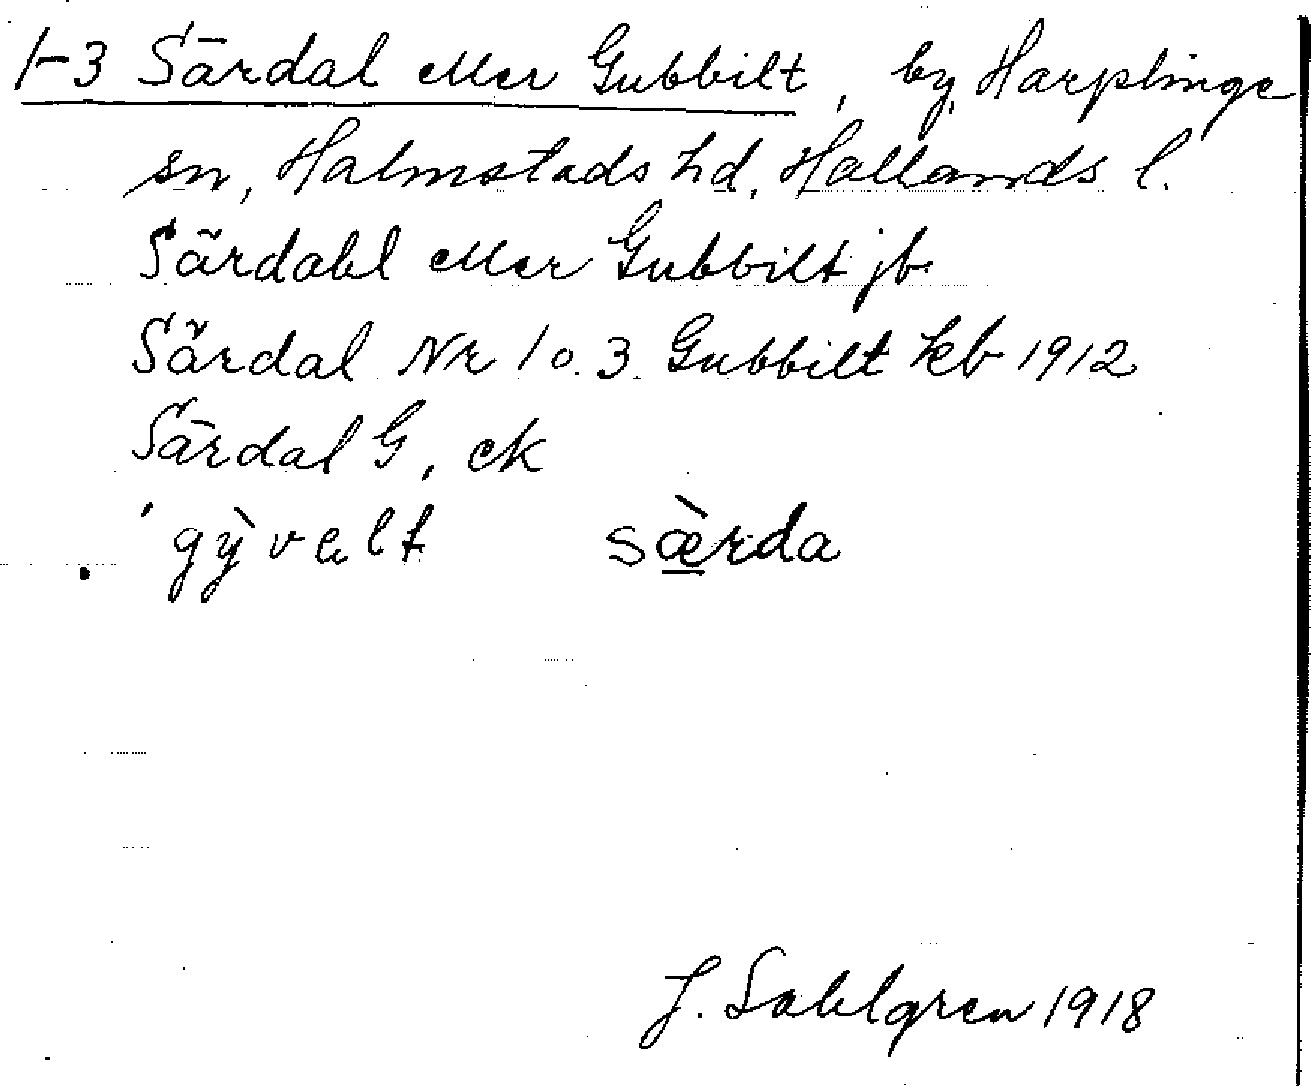 1-3 Särdal eller Gubbilt, by, Harplinge
sn, Halmstads hd, Hallands l.
Särdahl eller Gubbilt jb.
Särdal Nr 1 o. 3. Gubbilt kb 1912
Särdal G, ek
gỳvalt sæ̀rda
J. Sahlgren 1918